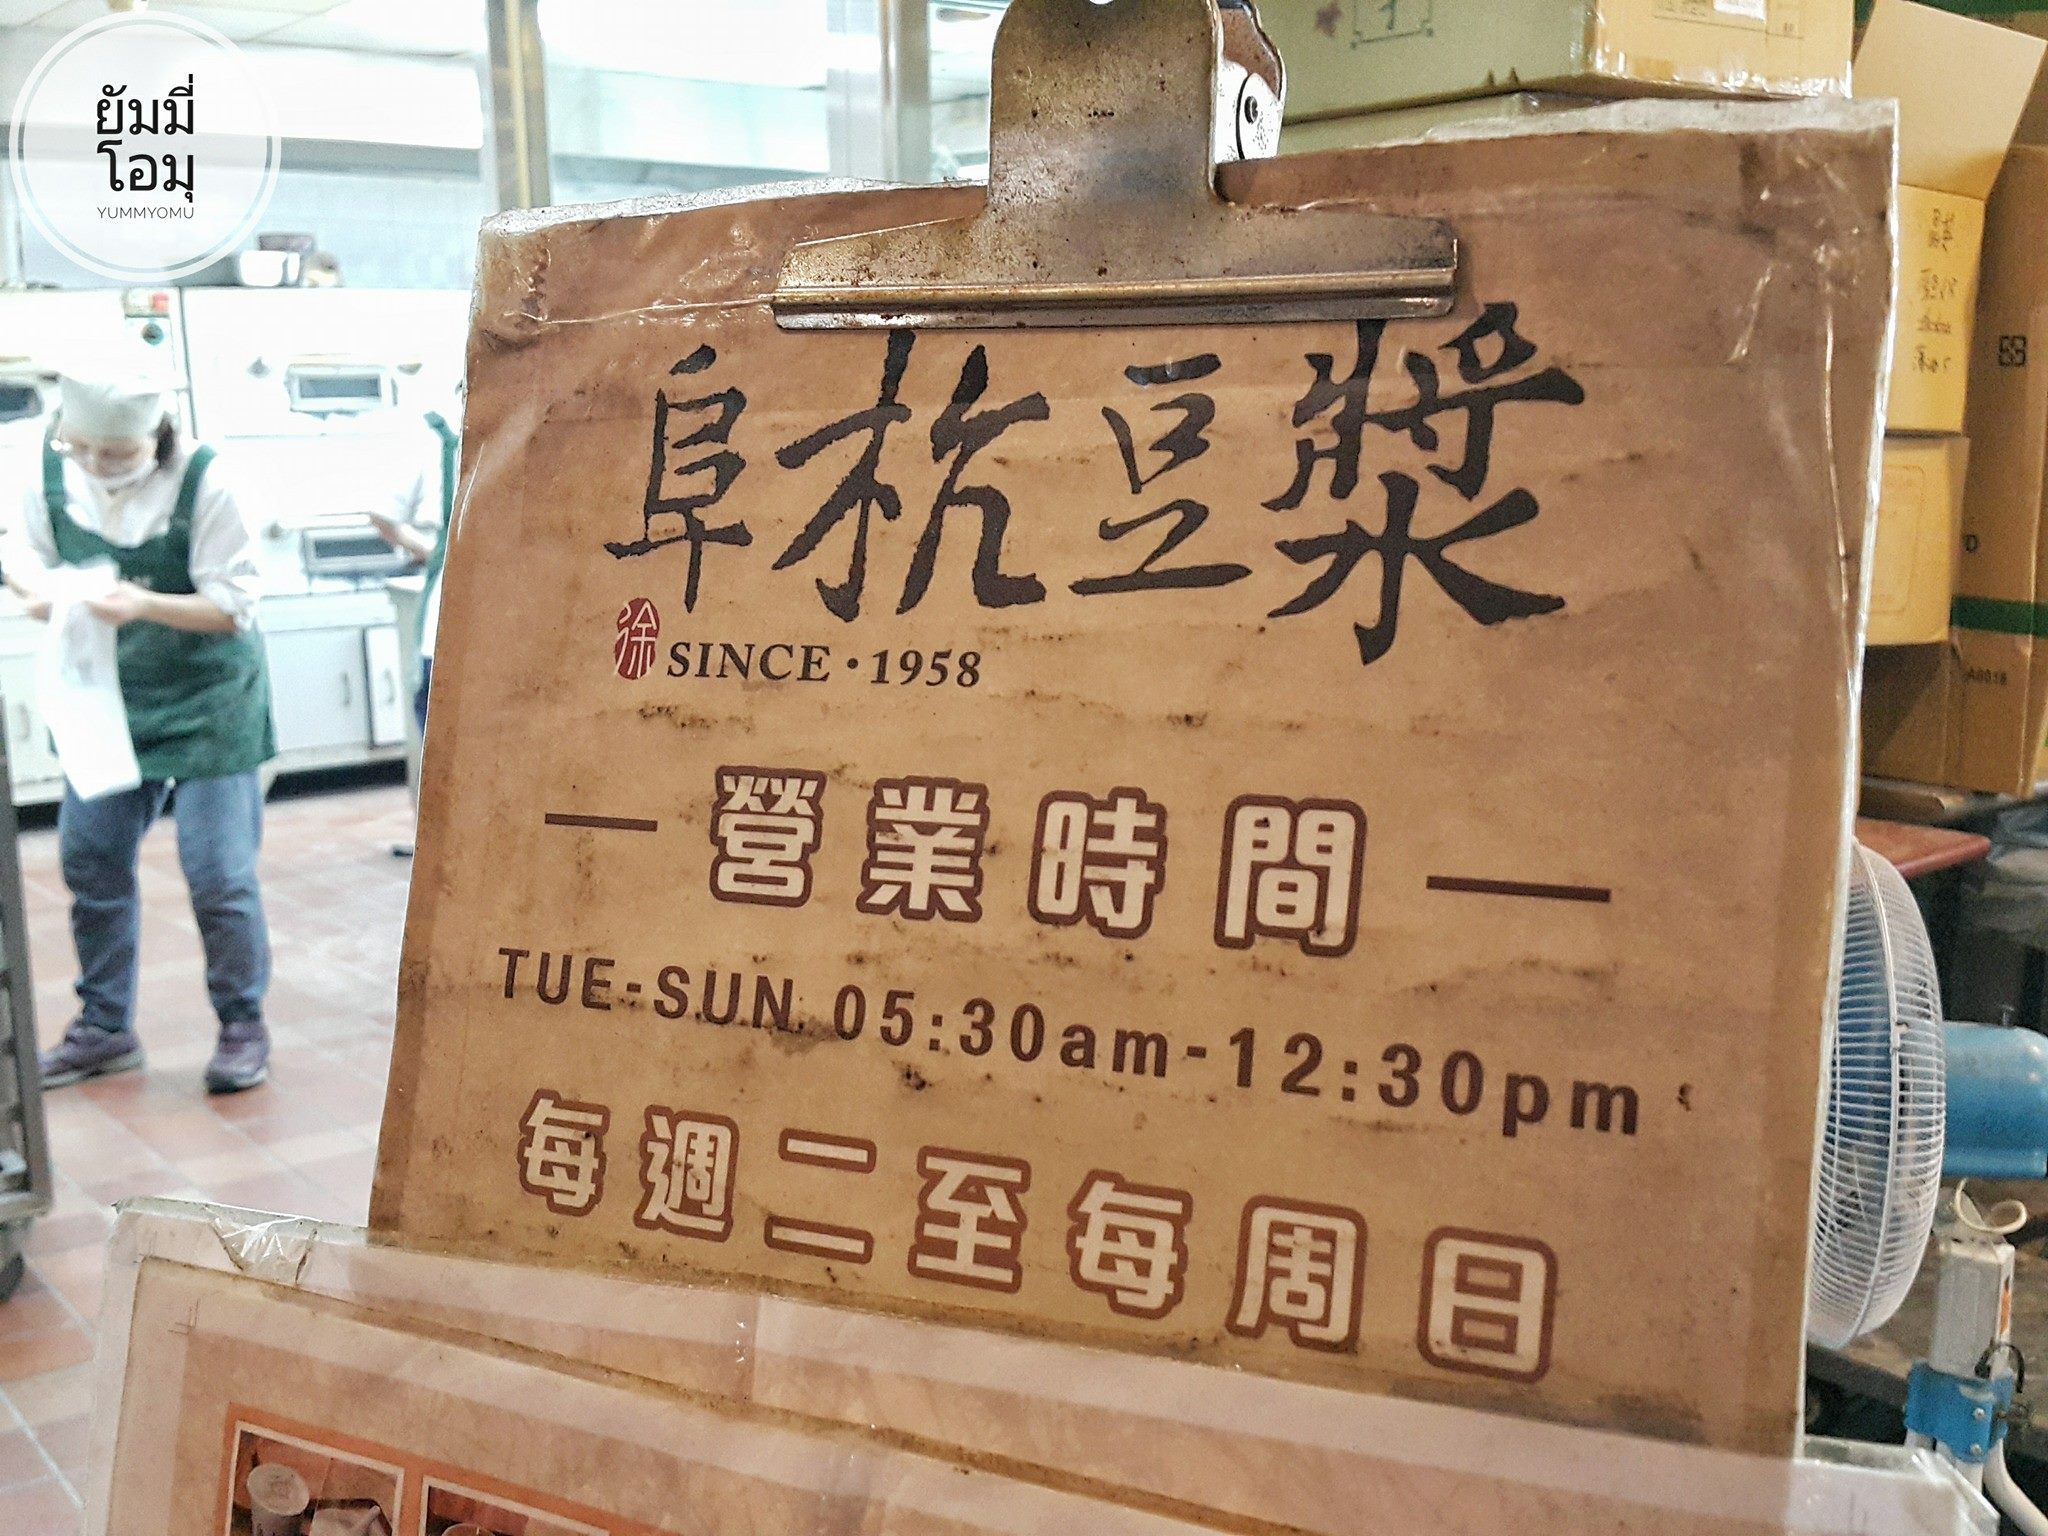 ยัมมี่
โอมุ
YUMMYOMU
阜杭豆漿
徐 SINCE·1958
營業時間
TUE-SUN 05:30am-12:30pm
每週二至每周日